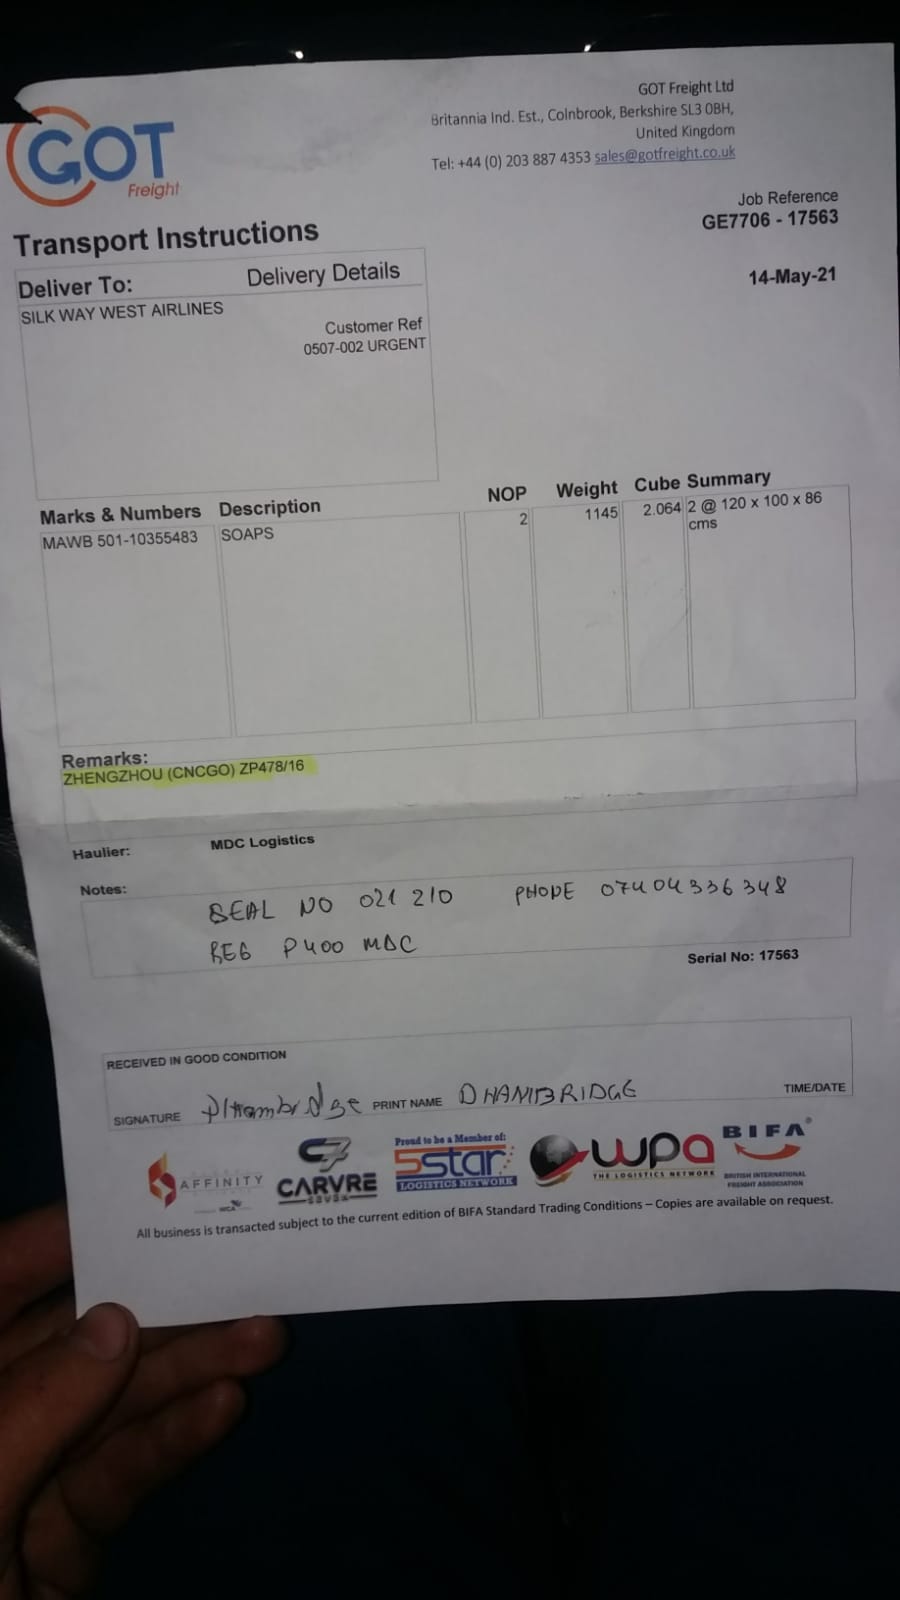 GOT Freight
GOT Freight Ltd
Britannia Ind. Est., Colnbrook, Berkshire SL3 0BH,
United Kingdom
Tel: +44 (0) 203 887 4353 sales@gotfreight.co.uk
Job Reference
GE7706 - 17563
14-May-21
Transport Instructions
Deliver To: Delivery Details
SILK WAY WEST AIRLINES
Customer Ref
0507-002 URGENT
Marks & Numbers Description NOP Weight Cube Summary
MAWB 501-10355483 SOAPS 2 1145 2.064 2 @ 120 x 100 x 86
cms
Remarks:
ZHENGZHOU (CNCGO) ZP478/16
Haulier: MDC Logistics
Notes:
SEAL NO 021 210 PHONE 07404336348
REG P400 MDC
Serial No: 17563
RECEIVED IN GOOD CONDITION
SIGNATURE PRINT NAME DHAMBRIDGE TIME/DATE
AFFINITY
C7
CARVRE
Proud to be a Member of:
5star
LOGISTICS NETWORK
wpa
THE LOGISTICS NETWORK
BIFA
BRITISH INTERNATIONAL
FREIGHT ASSOCIATION
All business is transacted subject to the current edition of BIFA Standard Trading Conditions – Copies are available on request.